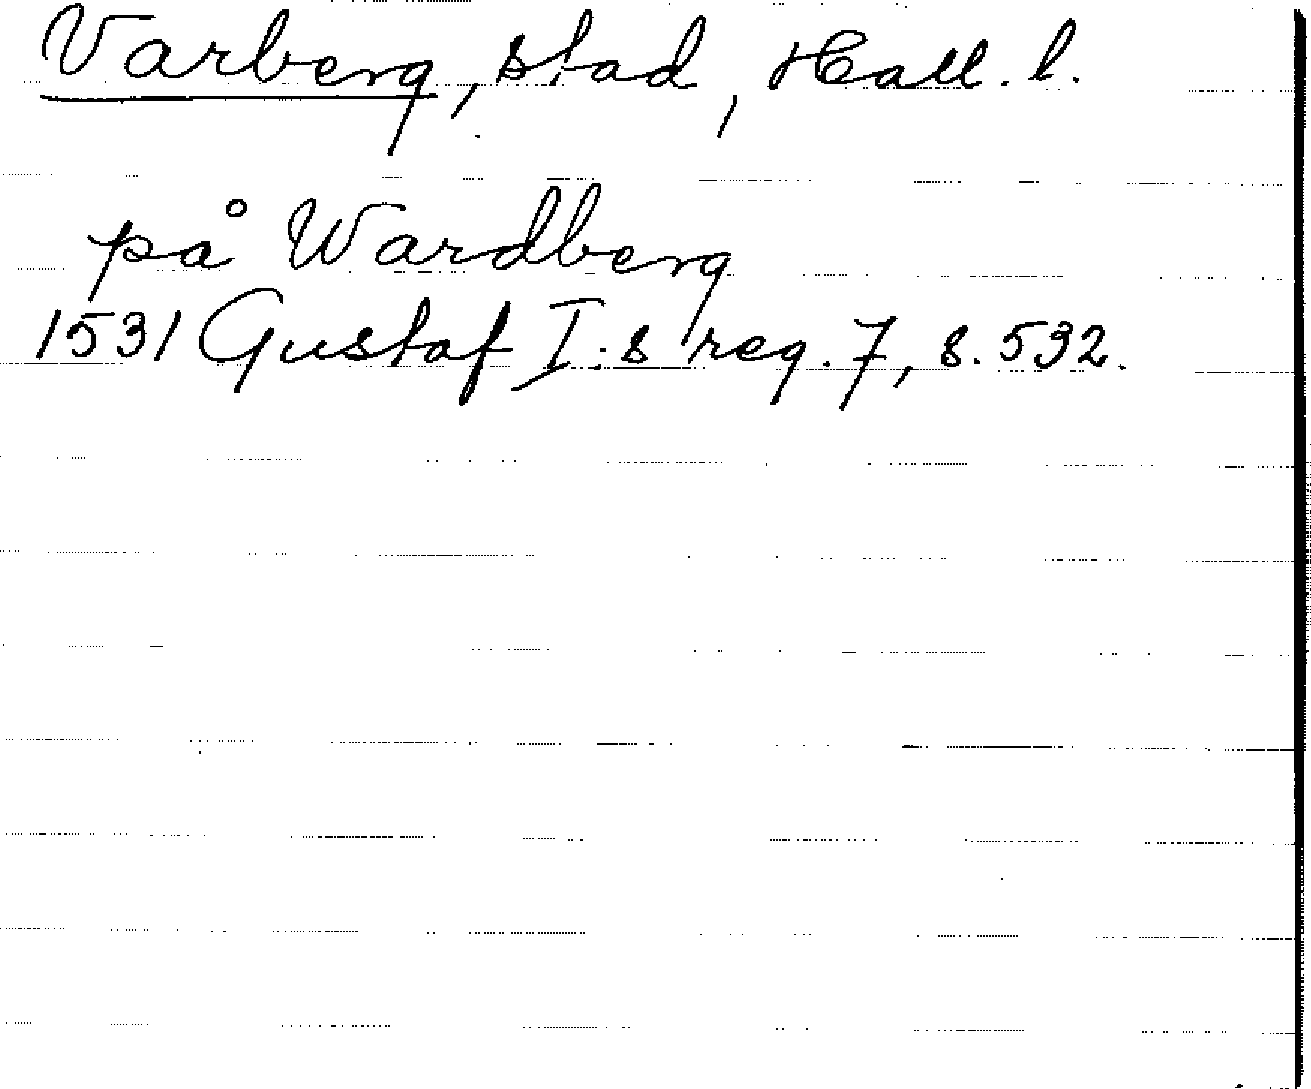 Varberg, stad, Hall. l.
på Wardberg
1531 Gustaf I:s reg. 7, s. 532.